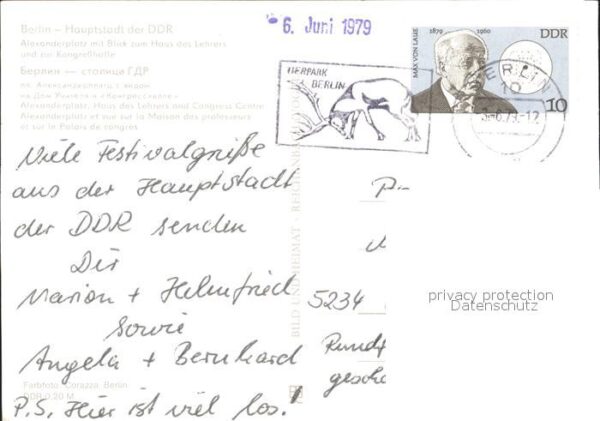 Berlin — Hauptstadt der DDR
Alexanderplatz mit Blick zum Haus des Lehrers
und zur Kongreßhalle
Берлин — столица ГДР
Alexanderplatz, Haus des Lehrers and Congress Centre
Alexanderplatz et vue sur la Maison des professeurs
et sur le Palais de congrès
6. Juni 1979
MAX VON LAUE
1879 1960
DDR
10
TIERPARK
BERLIN
BERLIN
10
-5.6.79.-12
BILD UND HEIMAT · REICHENBACH
Viele Festivalgrüße
aus der Hauptstadt
der DDR senden
Dir
Marion + Helmfried
sowie
Angela + Bernhard
P.S. Hier ist viel los!
5234
Rund
gescha
privacy protection
Datenschutz
Farbfoto: Corazza, Berlin
DDR 0,20 M